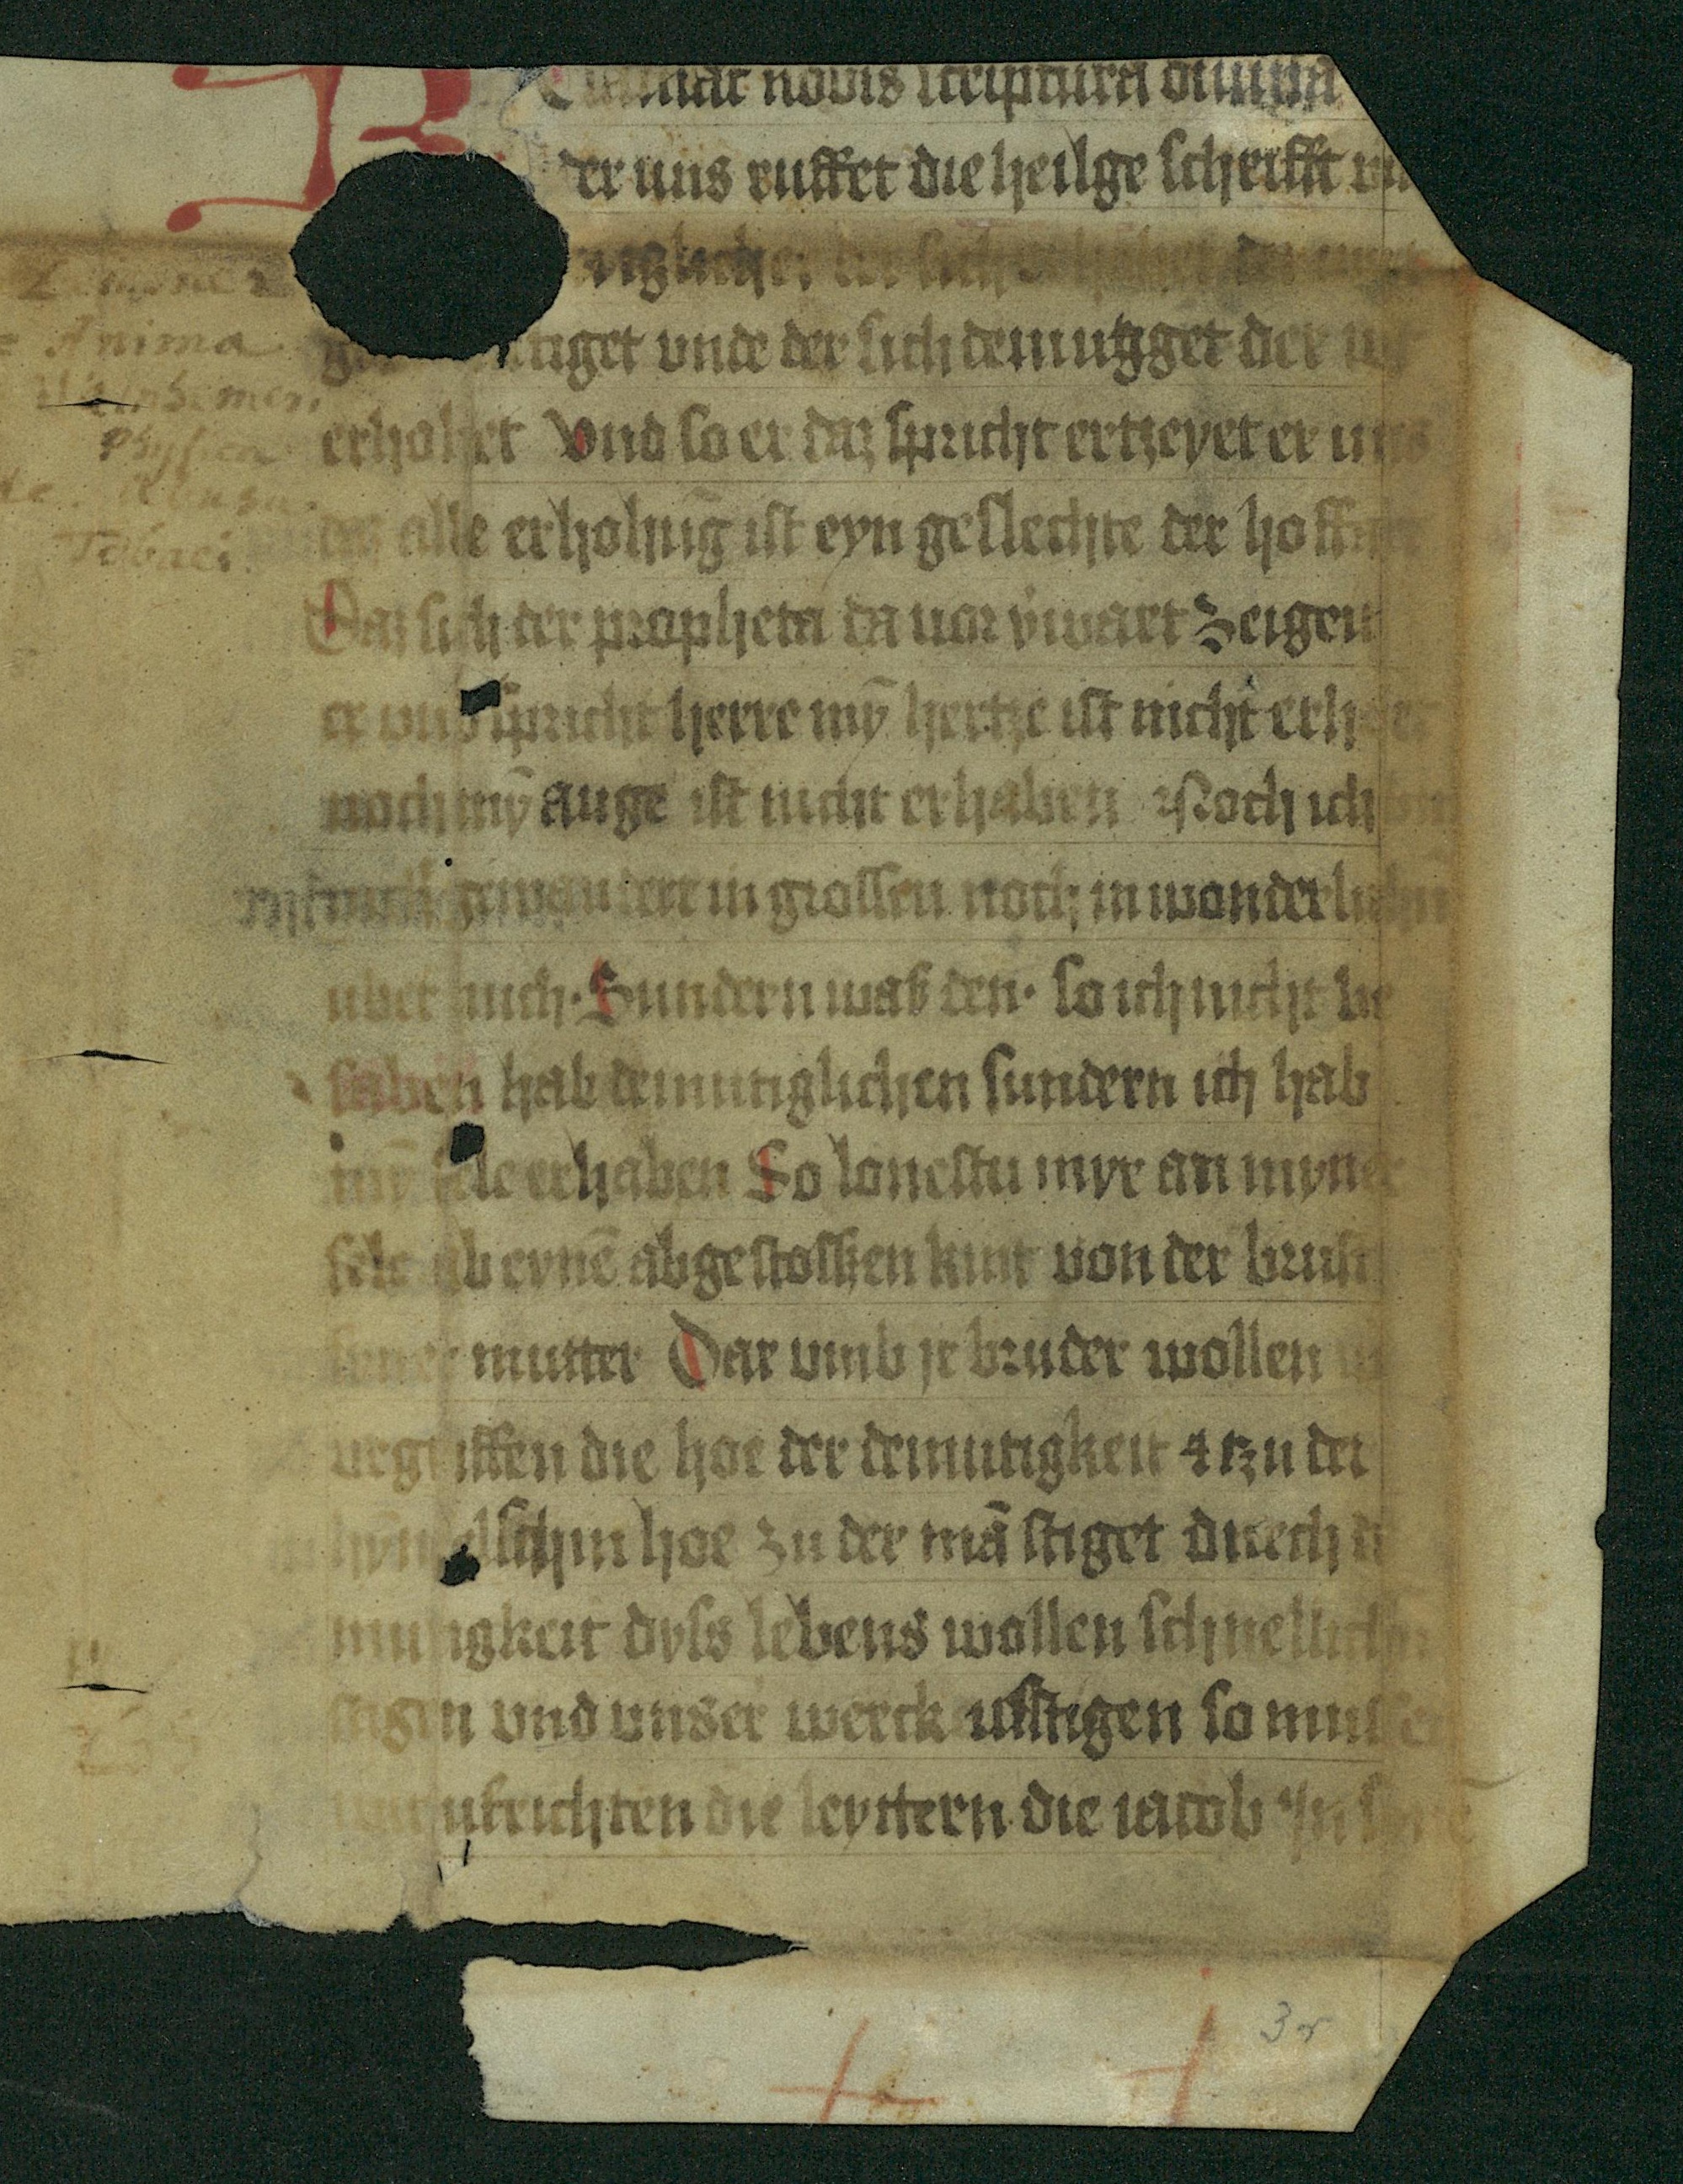 Clamat nobis scriptura diuina
der uns ruffet die heilge schrifft
iglicher der sich
get vnde der sich demutgget der
erhohet Vnd so er daz spricht ertzeyet er uns
daz alle erhohūg ist eyn geslechte der hoffart
Daz sich der propheta da uor ỽwart Zeigen
er vnd spricht herre mȳ hertze ist nicht erhabt
noch mȳ auge ist nicht erhaben Noch ich bin
gewandert in grossen noch in wonderlichn̄
uber mich. Sundern waß den. so ich nicht be
saben hab demutiglichen sundern ich hab
mȳ sele erhaben So lonestu myr an myner
sele ab eynē abgestossen kint von der brust
syner mutter Dar vmb ir bruder wollen
urgriffen die hoe der demutigkeit & tzu der
hȳmelschin hoe zu der mā stiget durch d
mutigkeit dyss lebens wollen schnellichn
stigen vnd vnser werck ufstigen so mussen
ufrichten die leyttern die iacob In
Anima
Physica
de Abusu
Tabaci
3r